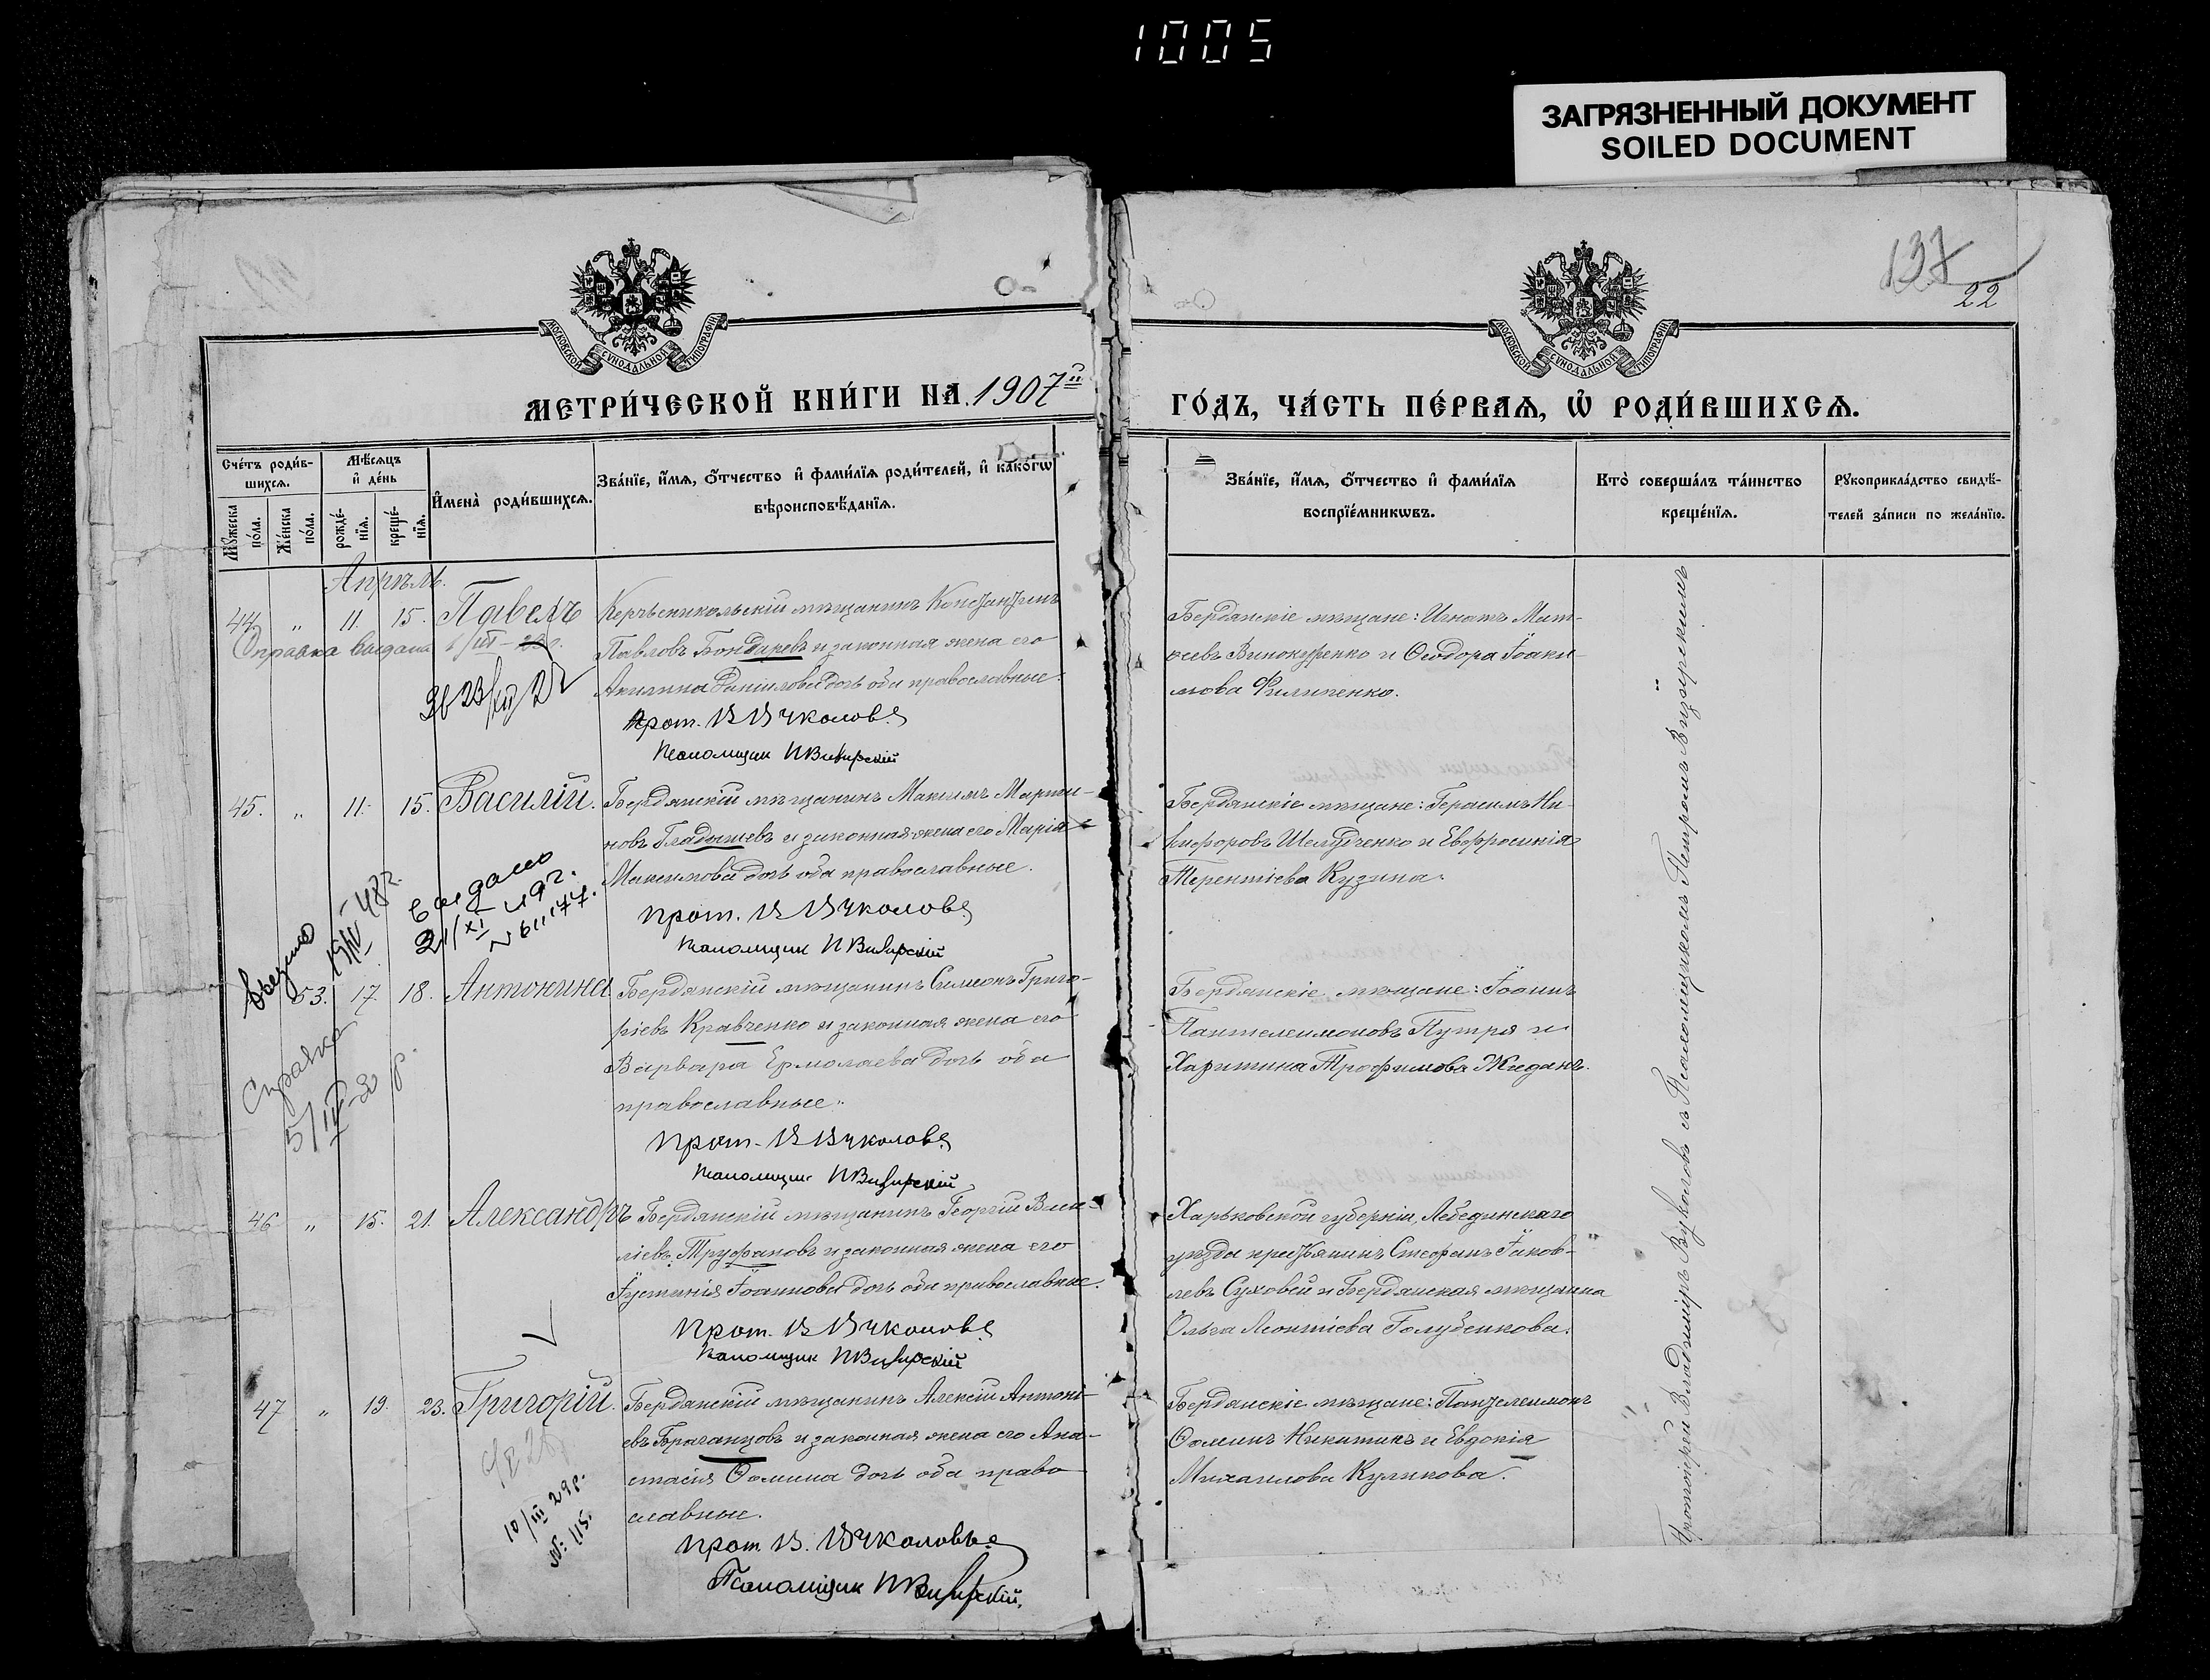 1005
ЗАГРЯЗНЕННЫЙ ДОКУМЕНТ
SOILED DOCUMENT
137
22
МОСКОВСКОЙ СѴНОДАЛЬНОЙ ТИПОГРАФІИ
МОСКОВСКОЙ СѴНОДАЛЬНОЙ ТИПОГРАФІИ
МЕТРИ́ЧЕСКОЙ КНИ́ГИ НА 1907й
ГО́ДЪ, ЧА́СТЬ ПЕ́РВАѦ, Ѽ РОДИ́ВШИХСѦ.
Сче́тъ роди́в-
шихсѧ.
Мꙋ́жеска по́ла.
Же́нска по́ла.
Мѣ́сѧцъ
и҆ де́нь
рожде́-
нїѧ.
креще́-
нїѧ.
И҆мена̀ роди́вшихсѧ.
Зва́нїе, и҆́мѧ, ѻ҆́тчество и҆ фами́лїѧ роди́телей, и҆ како́гѡ
вѣроисповѣ́данїѧ.
Зва́нїе, и҆́мѧ, ѻ҆́тчество и҆ фами́лїѧ
воспрїе́мникѡвъ.
Кто̀ соверша́лъ та́инство
креще́нїѧ.
Рꙋкоприкла́дство свидѣ́-
телей за́писи по жела́нїю.
Апрѣль.
44. " 11. 15. Павелъ
Керчьеникольскій мѣщанинъ Константинъ
Павловъ Бондаревъ и законная жена его
Акилина Даніилова дочь оба православные.
Прот. В Вуколовъ
Псаломщик П Визирскій
Бердянскіе мѣщане: Игнатъ Мат-
ѳеевъ Винокуренко и Ѳеодора Іоаки-
мова Филипенко.
Справка выдана
45. " 11. 15. Василій.
Бердянскій мѣщанинъ Максимъ Марти-
новъ Гладышевъ и законная жена его Марія
Максимова дочь оба православные.
Прот. В Вуколовъ
Псаломщик П Визирскій
Бердянскіе мѣщане: Герасимъ Ни-
кифоровъ Шелудченко и Евфросинія
Терентіева Кузина.
выдано
21/XI 49г.
53. 17. 18. Антонина
Бердянскій мѣщанинъ Симеонъ Григо-
ріевъ Кравченко и законная жена его
Варвара Ермолаева дочь оба
православные.
Прот. В Вуколовъ
Псаломщик П Визирскій
Бердянскіе мѣщане: Іоаннъ
Пантелеимоновъ Путря и
Харитина Трофимова Жиданъ.
Справка
46 " 15. 21. Александръ
Бердянскій мѣщанинъ Георгій Васи-
ліевъ Труфановъ и законная жена его
Іустинія Іоаннова дочь оба православные.
Прот. В Вуколовъ
Псаломщик П Визирскій
Харьковской губерніи, Лебединскаго
уѣзда крестьянинъ Стефанъ Іаков-
левъ Суховей и Бердянская мѣщанка
Ольга Леонтіева Голубенкова.
47 " 19. 23. Григорій.
Бердянскій мѣщанинъ Алексій Антоні-
евъ Браганцовъ и законная жена его Ана-
стасія Ѳомина дочь оба право
славные.
Прот. В. Вуколовъ
Псаломщик П Визирскій.
Бердянскіе мѣщане: Пантелеимонъ
Ѳоминъ Никитинъ и Евдокія
Михаилова Куликова.
10/III 29р.
№ 115.
Протоіерей Владиміръ Вуколовъ съ Псаломщикомъ Петромъ Визирскимъ